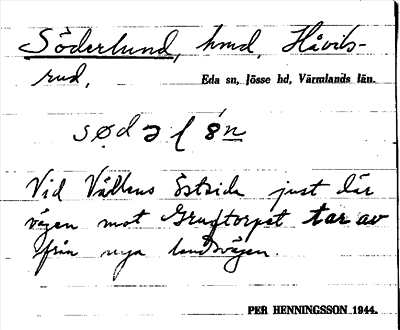 Söderlund, hmd, Håvils-
rud,
Eda sn, Jösse hd, Värmlands län.
Vid Vällens östsida just där
vägen mot Grustorpet tar av
från nya landsvägen.
PER HENNINGSSON 1944.